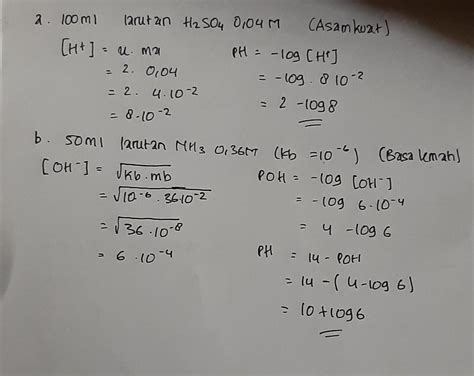 a. 100ml larutan H₂SO₄ 0,04 M (Asam kuat)
[H⁺] = a. ma
= 2. 0,04
= 2. 4.10⁻²
= 8.10⁻²
PH = -log [H⁺]
= -log . 8 10⁻²
= 2 - log 8
b. 50ml larutan NH₃ 0,36M (kb = 10⁻⁶) (Basa lemah)
[OH⁻] = √kb. mb
= √10⁻⁶. 36.10⁻²
= √36 . 10⁻⁸
= 6 . 10⁻⁴
POH = -log [OH⁻]
= -log 6.10⁻⁴
= 4 - log 6
PH = 14 - POH
= 14 - (4 - log 6)
= 10 + log 6